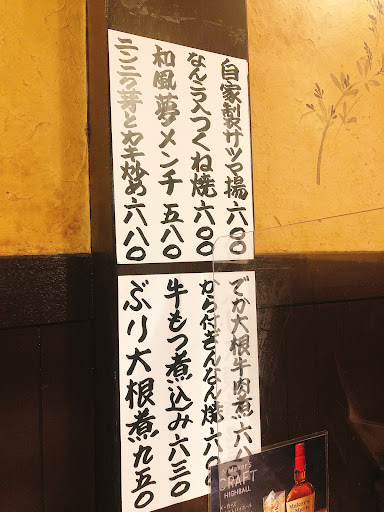 自家製サツマ揚 六〇〇
なんこつ入つくね焼 六〇〇
和風夢メンチ 五八〇
ニンニク芽とカキ炒め 六八〇
でか大根牛肉煮 六八
から付ぎんなん焼 六〇〇
牛もつ煮込み 六三〇
ぶり大根煮 九五〇
Maker's
CRAFT
HIGHBALL